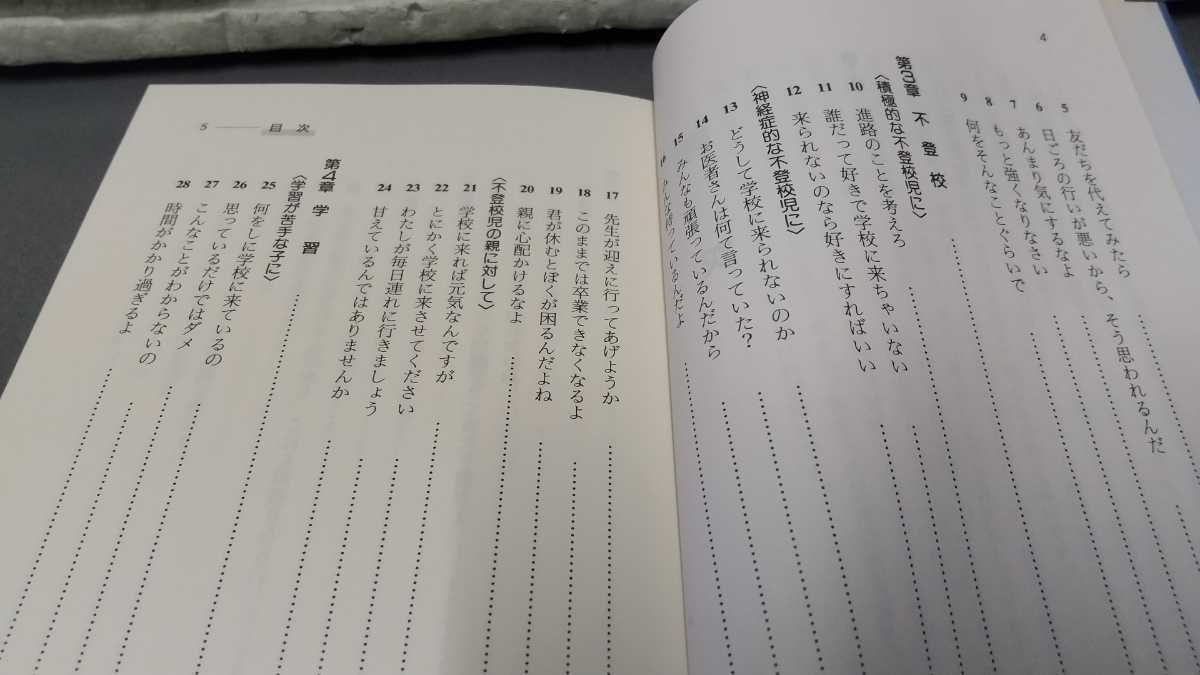 4
5 友だちを代えてみたら
6 日ごろの行いが悪いから、そう思われるんだ
7 あんまり気にするなよ
8 もっと強くなりなさい
9 何をそんなことぐらいで
第3章 不登校
〈積極的な不登校児に〉
10 進路のことを考えろ
11 誰だって好きで学校に来ちゃいない
12 来られないのなら好きにすればいい
〈神経症的な不登校児に〉
13 どうして学校に来られないのか
14 お医者さんは何て言っていた?
15 みんなも頑張っているんだから
16 みんな待っているんだよ
5 目次
17 先生が迎えに行ってあげようか
18 このままでは卒業できなくなるよ
19 君が休むとぼくが困るんだよね
20 親に心配かけるなよ
〈不登校児の親に対して〉
21 学校に来れば元気なんですが
22 とにかく学校に来させてください
23 わたしが毎日連れに行きましょう
24 甘えているんではありませんか
第4章 学習
〈学習が苦手な子に〉
25 何をしに学校に来ているの
26 思っているだけではダメ
27 こんなことがわからないの
28 時間がかかり過ぎるよ